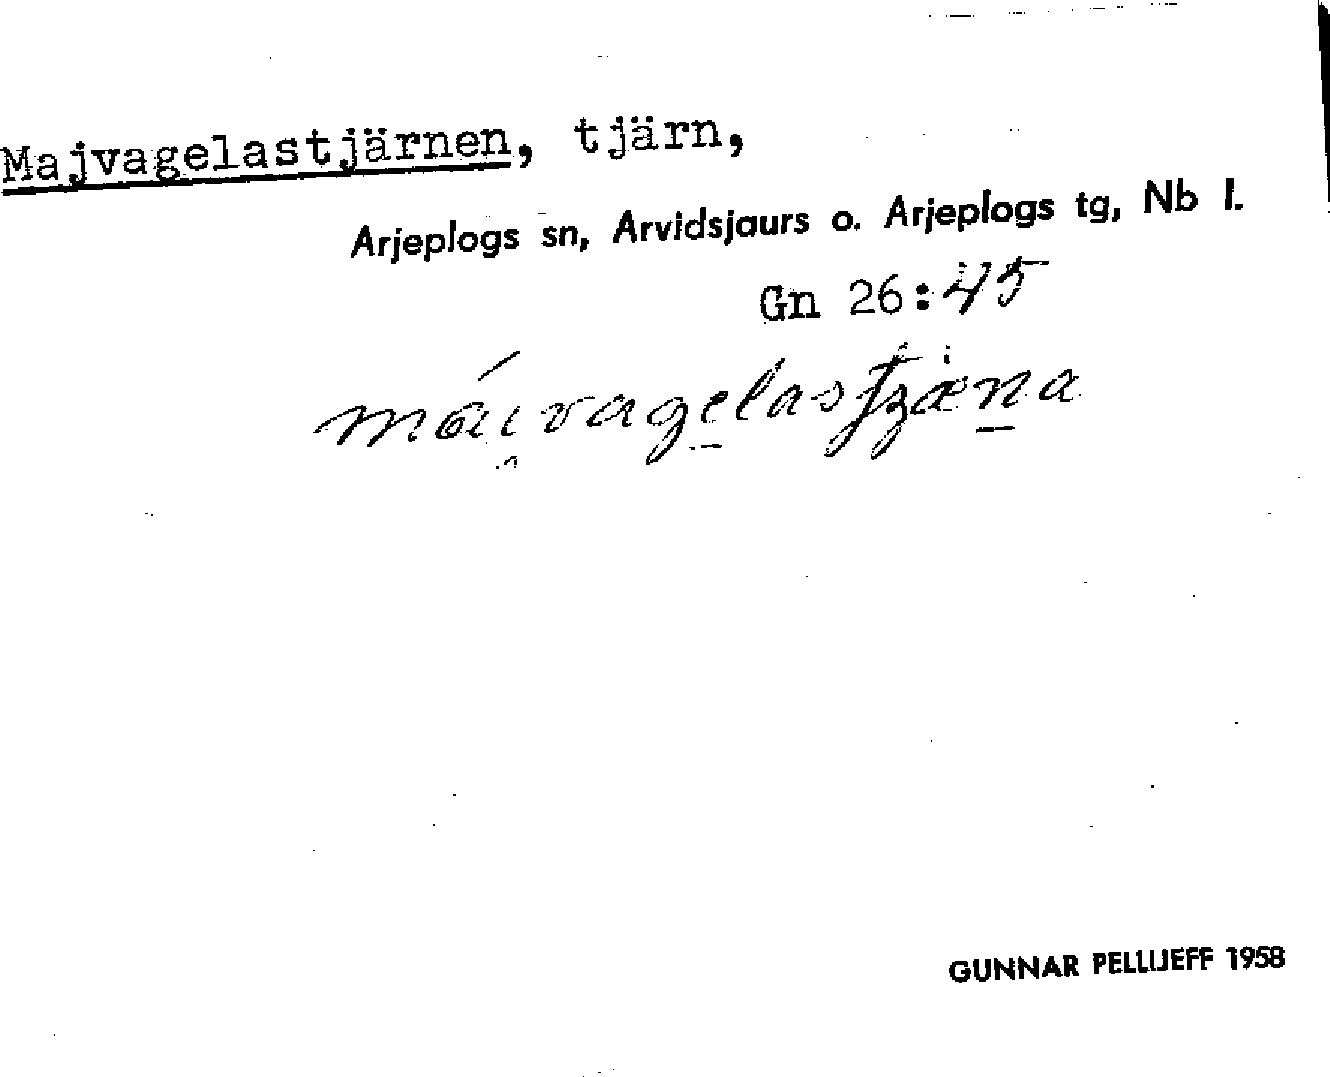 Majvagelastjärnen, tjärn,
Arjeplogs sn, Arvidsjaurs o. Arjeplogs tg, Nb l.
Gn 26:45
GUNNAR PELLIJEFF 1958